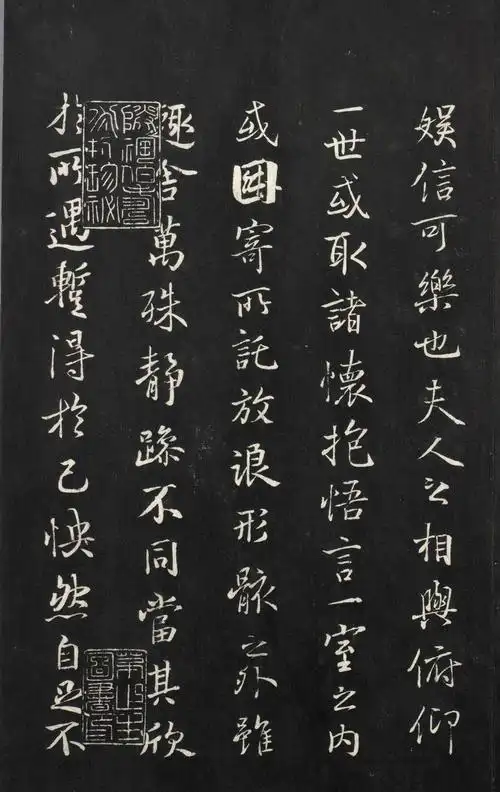 娛信可樂也夫人之相與俯仰
一世或取諸懷抱悟言一室之内
或因寄所託放浪形骸之外雖
趣舍萬殊靜躁不同當其欣
於所遇蹔得於己怏然自足不